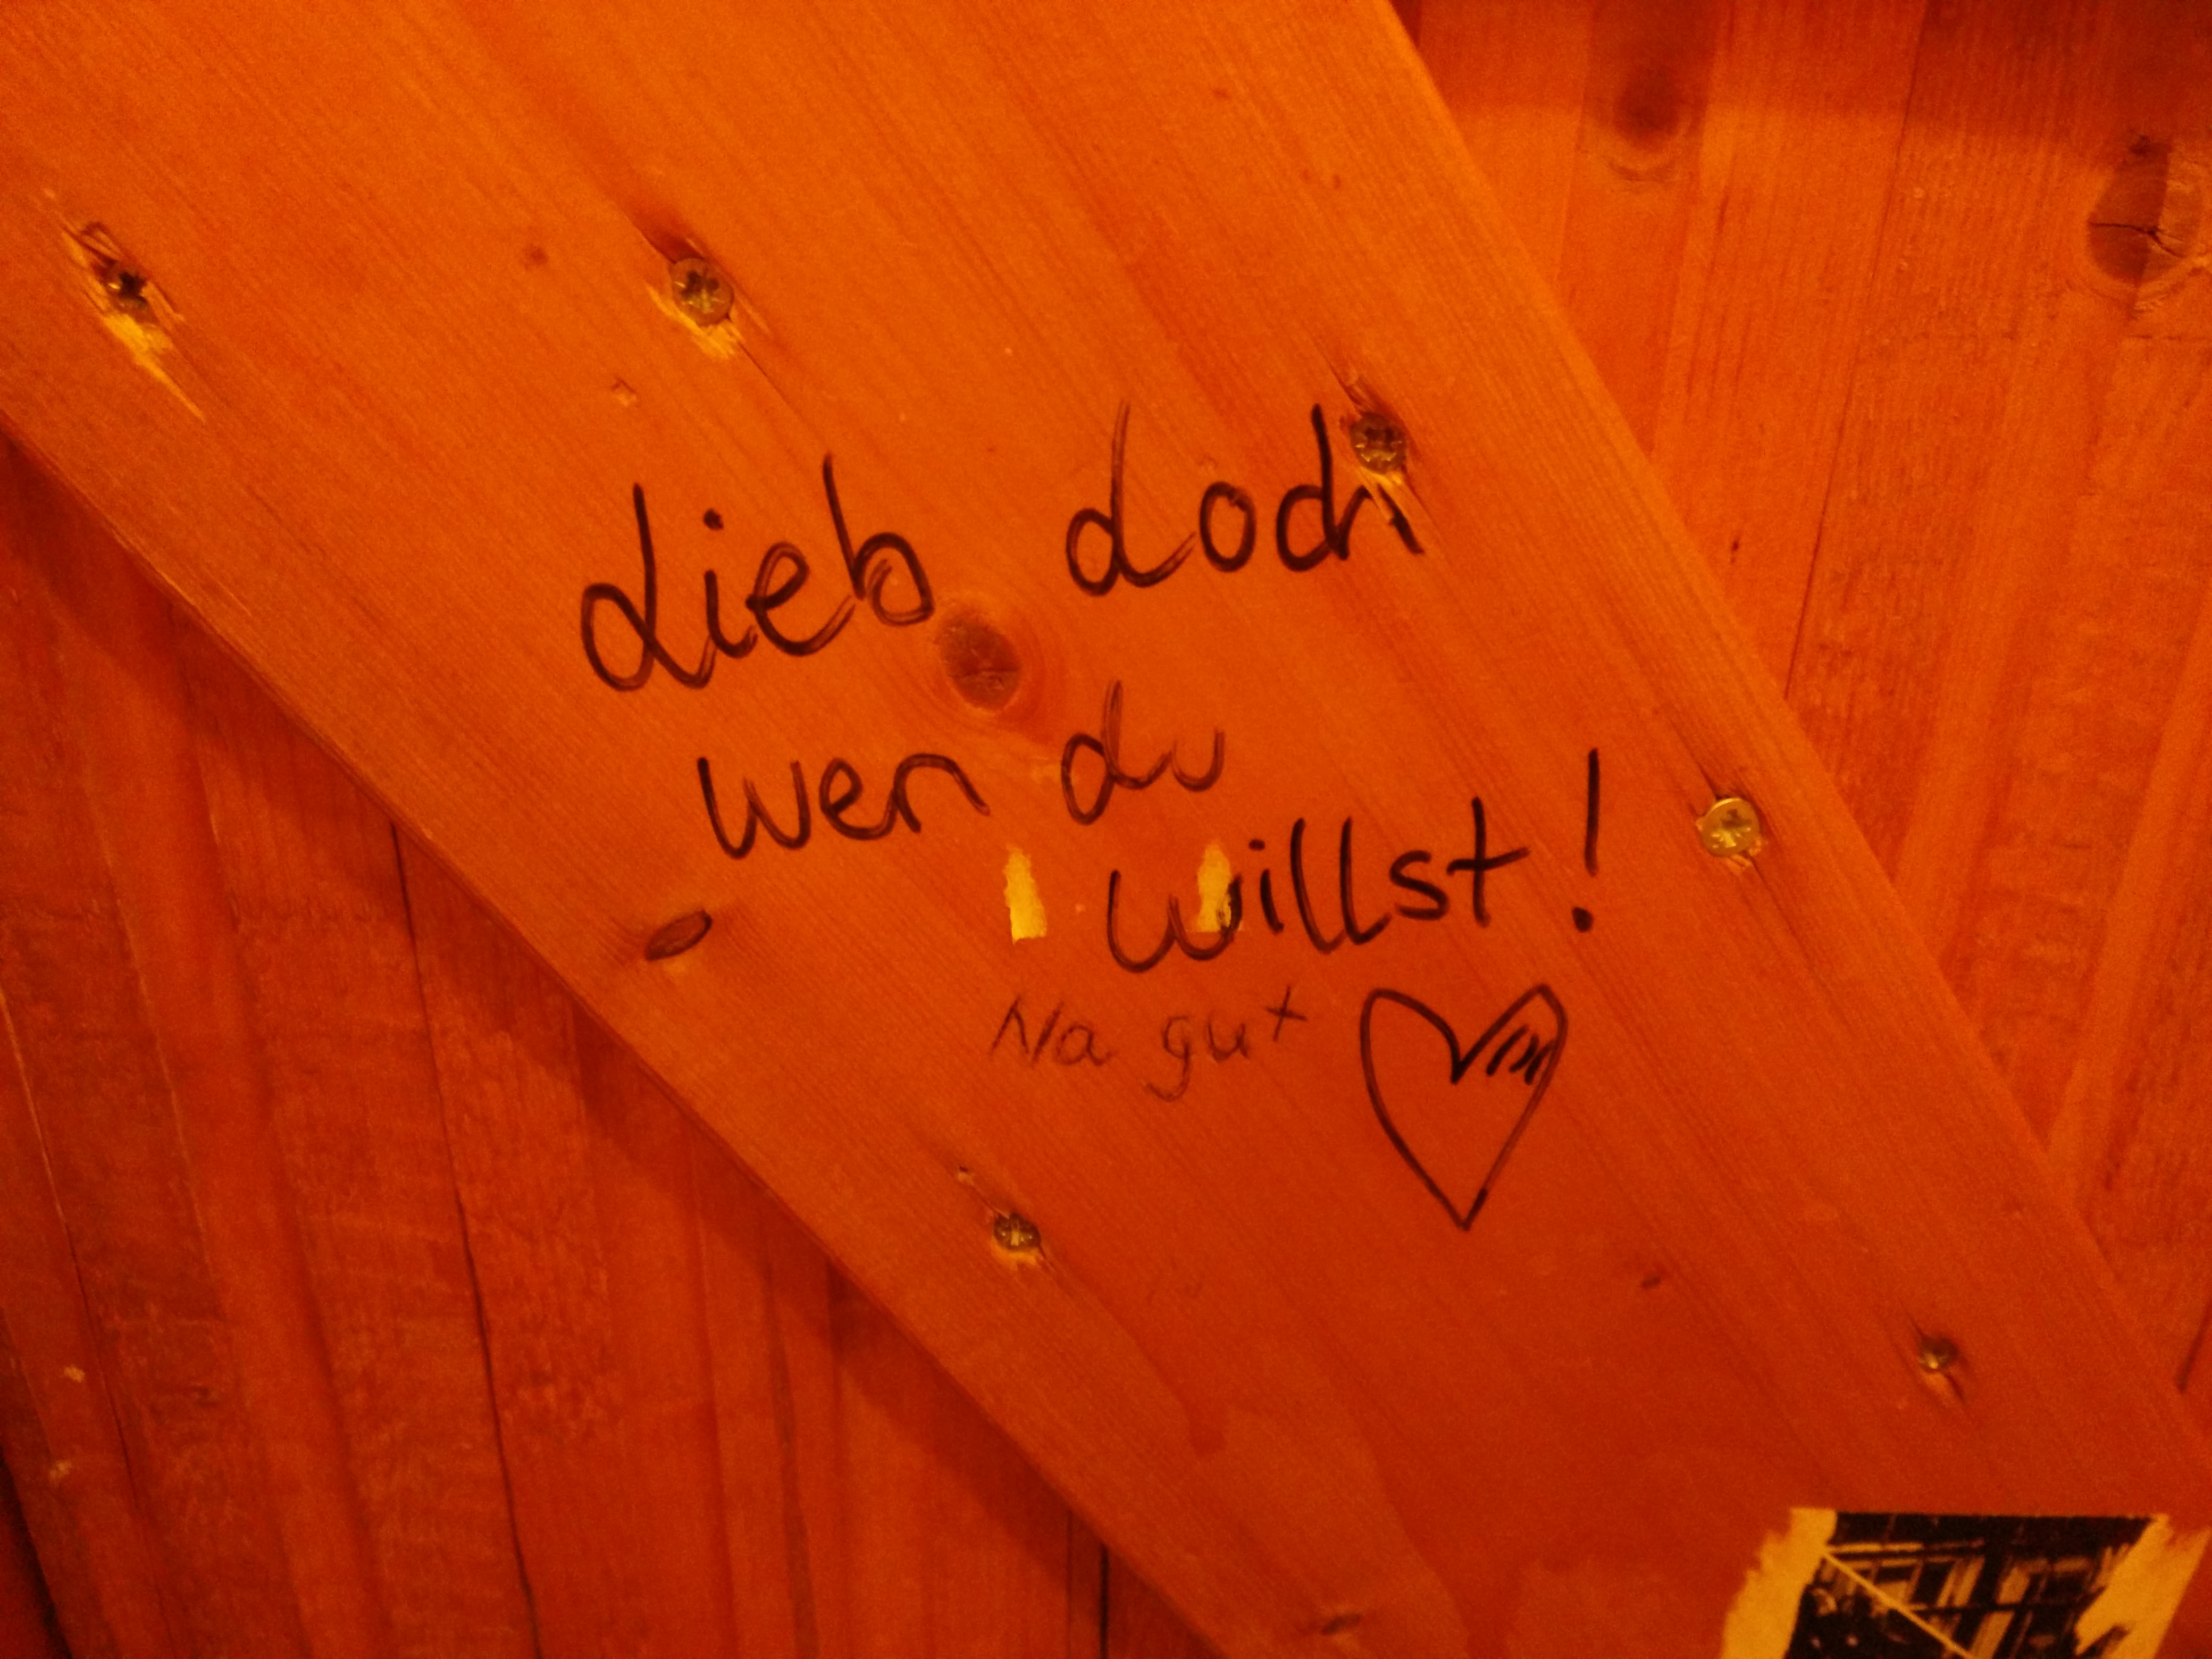 Lieb doch
wen du
willst!
Na gut